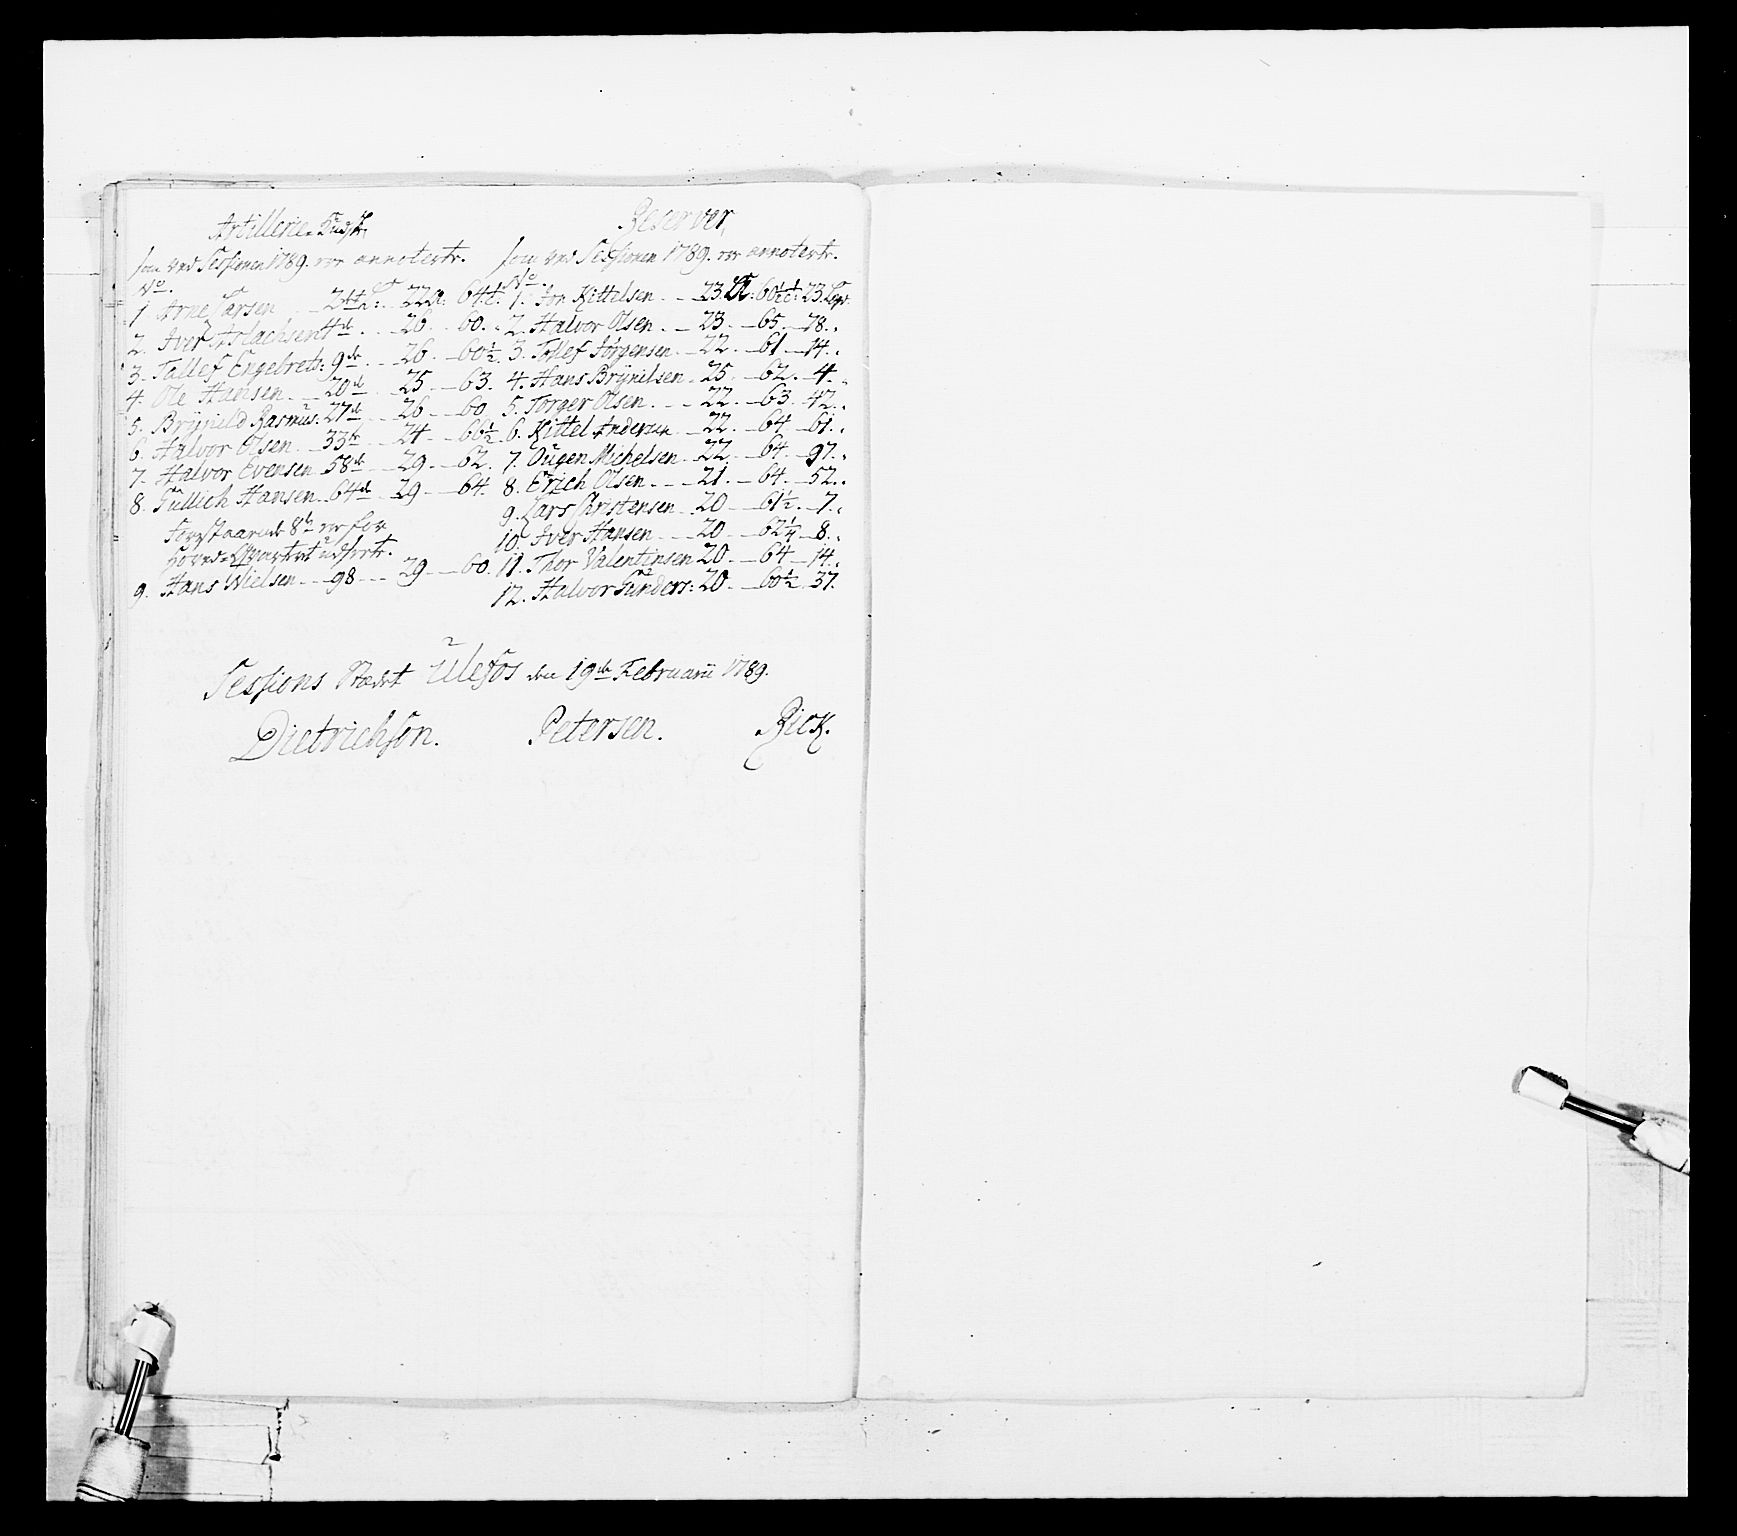 Artillerie Kudsk:
som ved Sessionen 1789. er annotert.
No.
1 Arne Larsen 22 a: 64.
2. Iver Aslachsen 4de 26 60.
3. Tallef Engelrets: 9de 26 60½.
4. Ole Hansen 20de 25 63.
5. Brÿnild Rasmus: 27de 26 60
6. Halvor Olsen 33te 24 66½.
7. Halvor Evensen 58de 29 62.
8. Gullich Hansen 64de 29 64.
Forestaaende 8te er for
udført.
9. Hans Nielsen 98 29 60.
Reserver
som ved Sessionen 1789. er annotert.
No.
1. Jon Kittelsen 23 23 Lægd
2. Halvor Olsen 23. 65. 78.
3. Tollef Jørgensen 22. 61 14.
4. Hans Brÿnilsen 25. 62. 4.
5. Torger Olsen 22. 63. 42.
6. Kittel Andersen 22. 64 61.
7. Ougen Michelsen 22. 64. 97.
8. Erich Olsen 21. 64. 52.
9. Lars Christensen 20 61½. 7.
10. Iver Hansen 20 62¼ 8.
11. Thor Valentinsen 20. 64 14.
12. Halvor Gunders: 20. 60½ 37.
Sessions Stædet Ulefos den 19de Februarii 1789.
Dietrichson. Petersen. Rick.